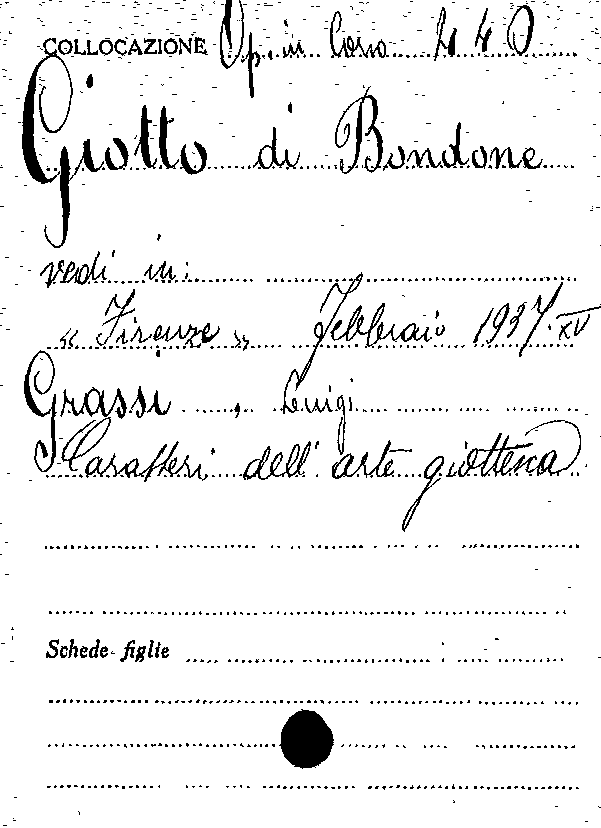 COLLOCAZIONE Op. in Corso 440
Giotto di Bondone
vedi in:
« Firenze » Febbraio 1937. XV
Grassi, Luigi
Caratteri dell'arte giottesca
Schede figlie